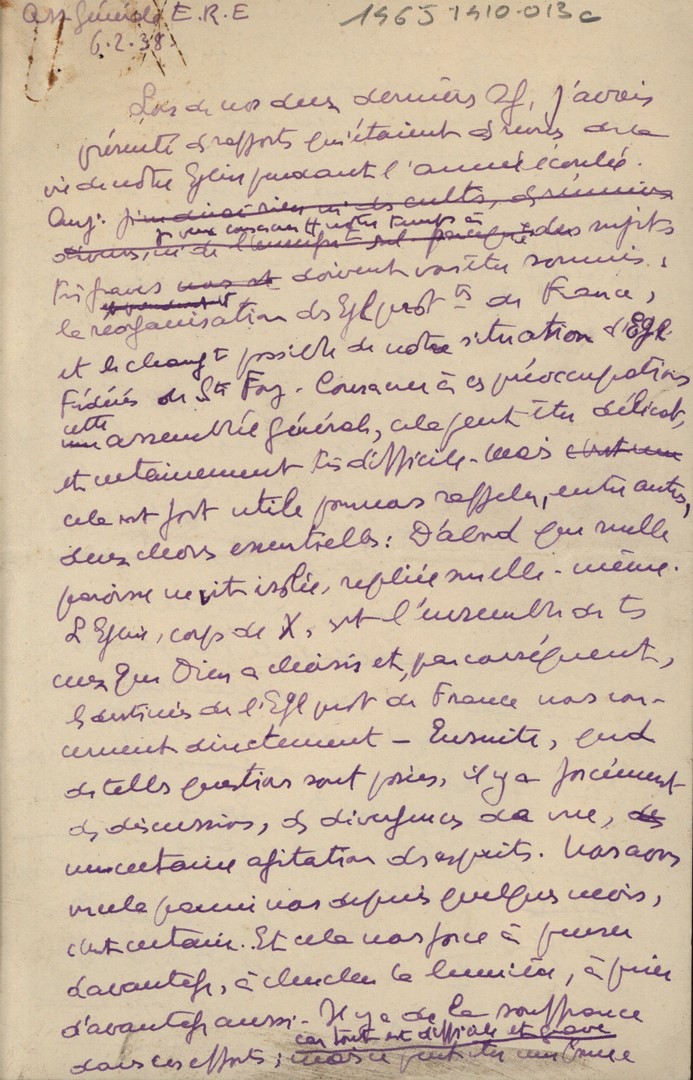 Ass Générale E.R.E 1965-1910-013c
6.2.38
Lors de nos deux dernières , j'avais
présenté des rapports qui étaient des revues de la
vie de notre Eglise pendant l'année écoulée.
Auj. je ne dirai rien ni des cultes, des réunions
je veux consacrer notre temps à
ni de des sujets
très graves doivent vous être soumis,
la réorganisation des Egl prot tes de France,
et le changt possible de notre situation d'Egl
Fédérés de Ste Foy. Consacrer à ces préoccupations
cette
une assemblée générale, cela peut être délicat,
et certainement très difficile. Mais c'est une
cela est fort utile pour nous rappeler, entre autres,
deux choses essentielles : D'abord que nulle
paroisse ne vit isolée, repliée sur elle-même.
L'Eglise, corps de X, est l'ensemble de ts
ceux que Dieu a choisis et, par conséquent,
les destinées de l'Egl prot de France nous con-
cernent directement – Ensuite, quand
de telles questions sont posées, il y a forcément
des discussions, des divergences de vue, des
une certaine agitation des esprits. Nous avons
vu cela parmi nous depuis quelques mois,
c'est certain. Et cela nous force à penser
davantage, à chercher la lumière, à prier
d'avantage aussi. Il y a de la souffrance
car tout est difficile et grave
dans ces efforts ; mais ce peut être une